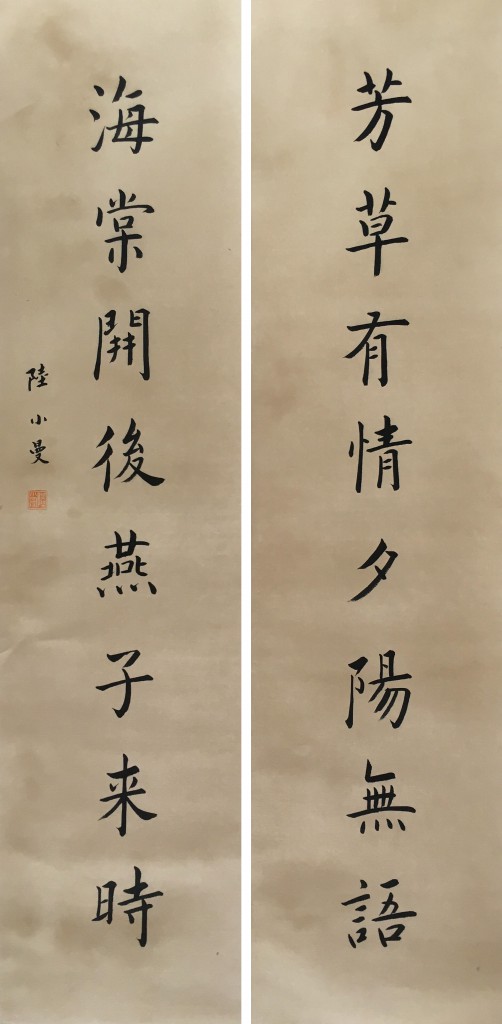 芳草有情夕陽無語
海棠開後燕子来時
陸小曼